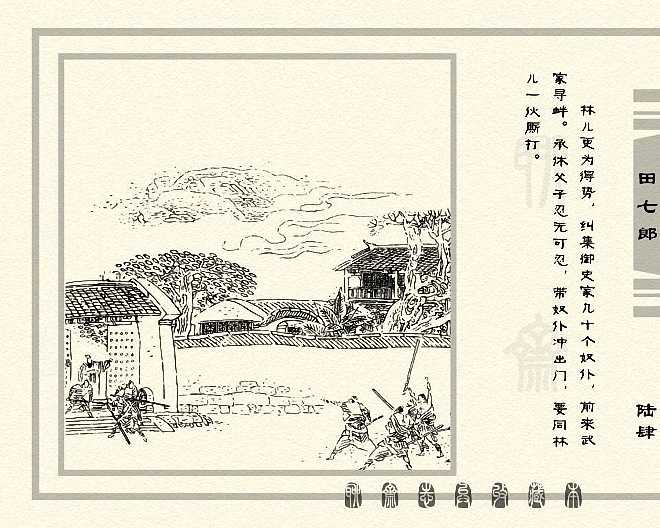 田七郎
陆肆
林儿更为得势，纠集御史家几十个奴仆，前来武
家寻衅。承休父子忍无可忍，带奴仆冲出门，要同林
儿一伙厮打。
聊斋志异收藏本